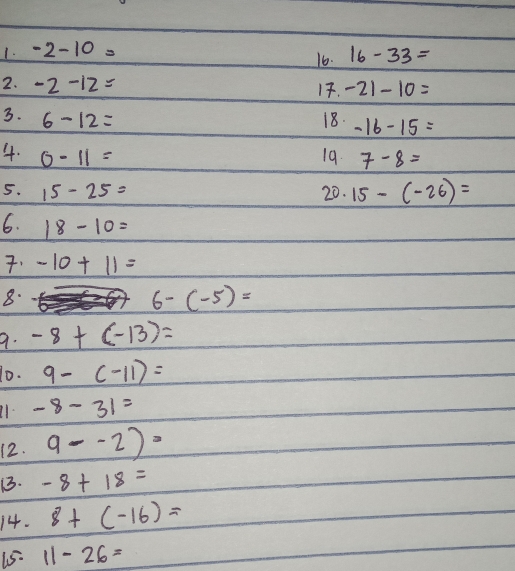 1. -2-10 =
2. -2 -12 =
3. 6 -12 =
4. 0 - 11 =
5. 15 - 25 =
6. 18 - 10 =
7. -10 + 11 =
8. 6- (-5) =
9. -8 + (-13) =
10. 9- (-11) =
11. -8 - 31 =
12. 9 - -2) =
13. -8 + 18 =
14. 8 + (-16) =
15. 11 - 26 =
16. 16 - 33 =
17. -21 - 10 =
18. -16 - 15 =
19. 7 - 8 =
20. 15 - (-26) =